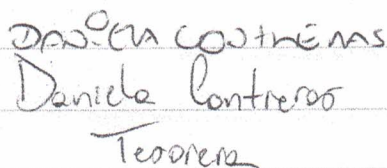 DANIELA CONTRERAS
Daniela Contreras
Tesorera